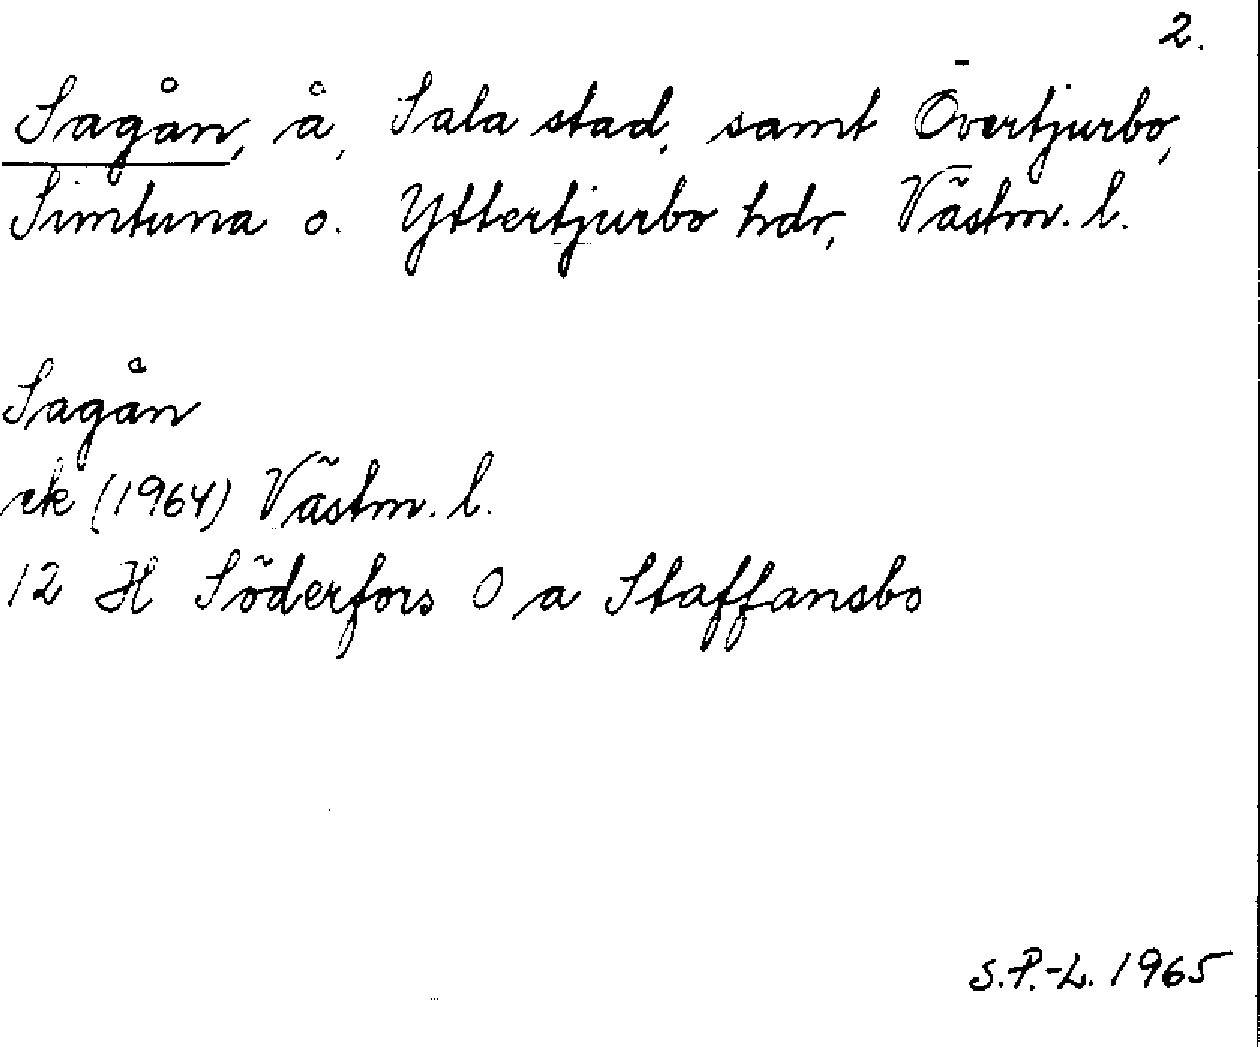 2.
Sagån, å, Sala stad, samt Övertjurbo,
Simtuna o. Yttertjurbo hdr, Västm. l.
Sagån
ek (1964) Västm. l.
12 H Söderfors O a Staffansbo
S.P.-L. 1965